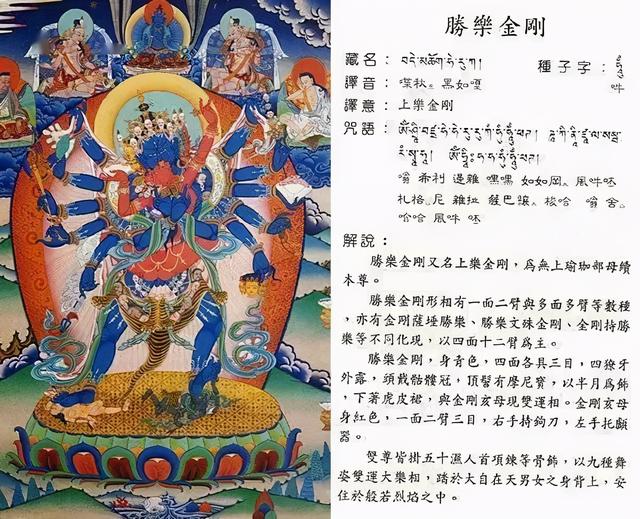 勝樂金剛
藏名：བདེ་མཆོག་ཧེ་རུ་ཀ། 種子字：ཧཱུྃ
譯音：喋秋。黑如嘎 吽
譯意：上樂金剛
咒語：
嗡 希利 邊雜 嘿嘿 如如岡。風吽呸
札格 尼 雜拉 發巴讓。梭哈 嗡 舍
哈哈 風吽 呸
解說：
勝樂金剛又名上樂金剛，為無上瑜珈部母續
本尊。
勝樂金剛形相有一面二臂與多面多臂等數種
，亦有金剛薩埵勝樂、勝樂文殊金剛、金剛持勝
樂等不同化現，以四面十二臂為主。
勝樂金剛，身青色，四面各具三目，四獠牙
外露，頭戴骷髏冠，頂髻有摩尼寶，以半月為飾
，下著虎皮裙，與金剛亥母現雙運相。金剛亥母
身紅色，一面二臂三目，右手持鉤刀，左手托顱
器。
雙尊皆掛五十濕人首項鍊等骨飾，以九種舞
姿雙運大樂相，踏於大自在天男女之身背上，安
住於般若烈焰之中。